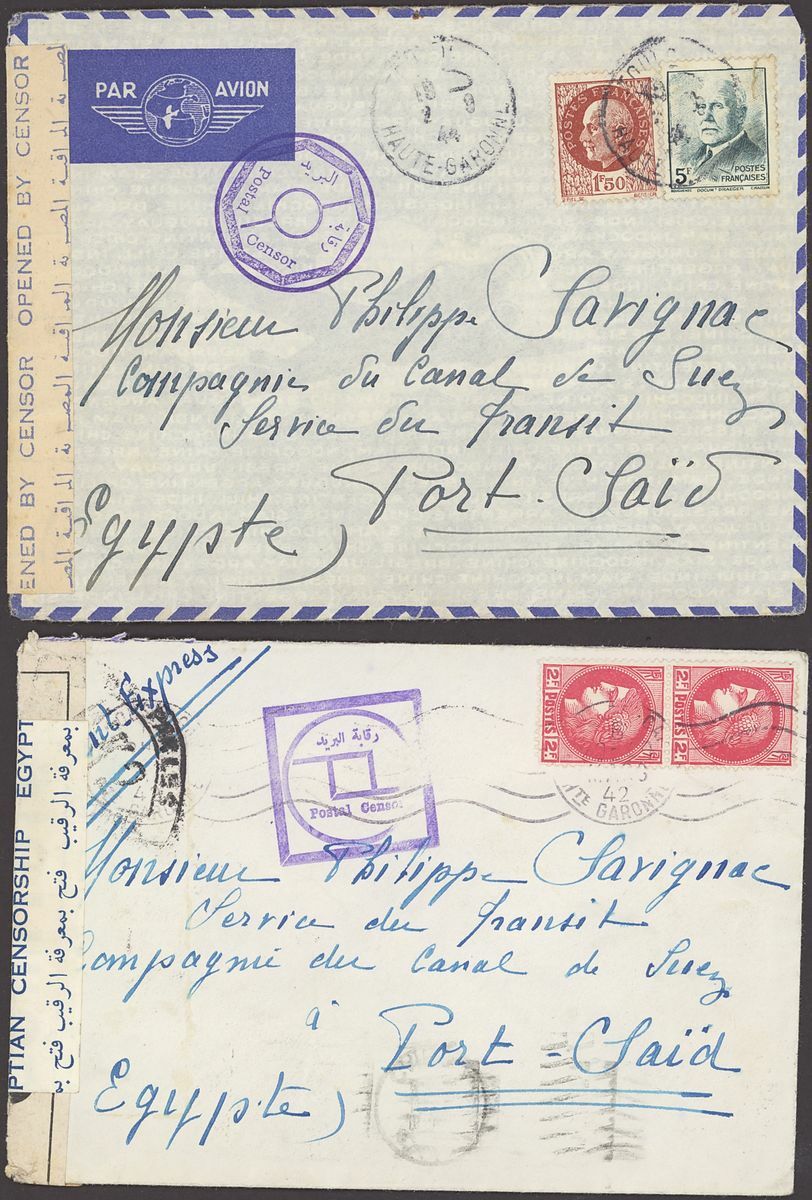 PAR AVION
OPENED BY CENSOR
ENED BY CENSOR
HAUTE-GARONNE
POSTES FRANÇAISES
1F50
5F
POSTES
FRANÇAISES
البريد
رقابة
Postal
Censor
Monsieur Philippe Savignac
Compagnie du Canal de Suez
Service du Transit
Port-Saïd
Egypte)
Express
PTIAN CENSORSHIP EGYPT
بمعرفة الرقيب فتح بمعرفة الرقيب فتح به
رقابة البريد
Postal Censor
2F POSTES 2F
2F POSTES 2F
42
HTE GARONNE
Monsieur Philippe Savignac
Service du Transit
Compagnie du Canal de Suez
à
Port-Saïd
Egypte)